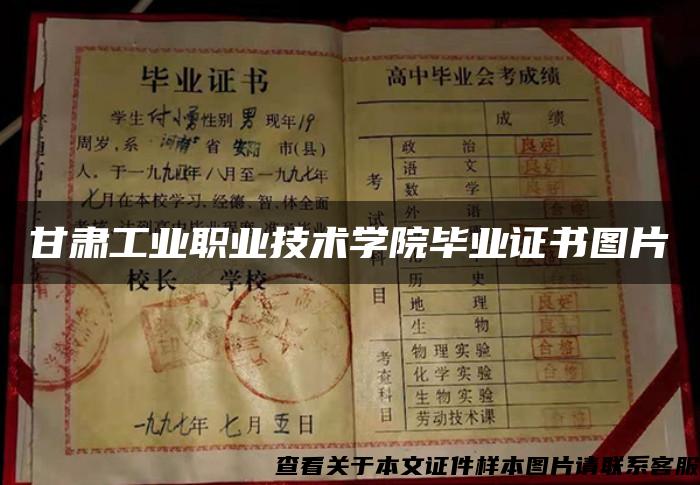 毕业证书
学生付小勇性别男现年19
周岁,系河南省安阳市(县)
人。于一九九四年八月至一九九七年
七月在本校学习,经德、智、体全面
校长 学校
一九九七年七月五日
高中毕业会考成绩
成绩
考试科目
政治 良好
语文 良好
数学 良好
外语 合格
历史
地理 良好
生物 良好
考查科目
物理实验 合格
化学实验 合格
生物实验
劳动技术课 合格
甘肃工业职业技术学院毕业证书图片
查看关于本文证件样本图片请联系客服